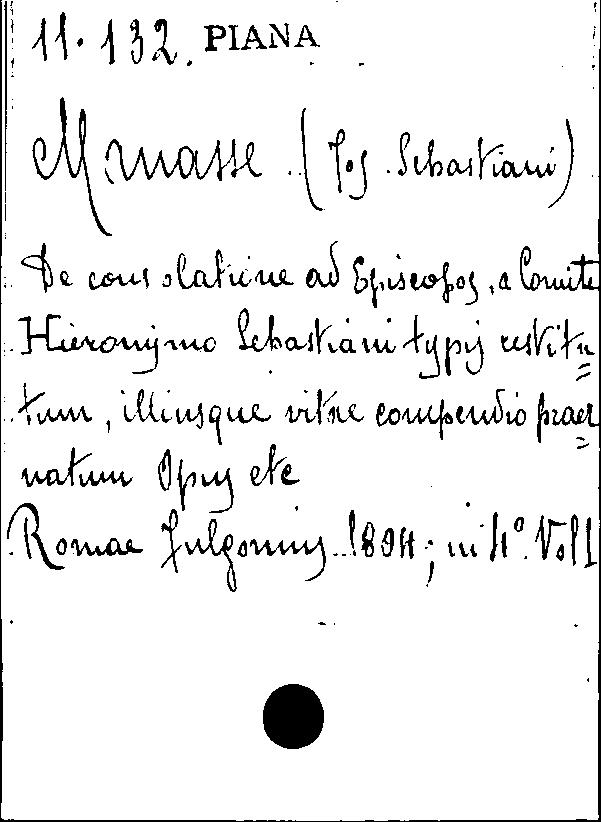 11. 132. PIANA
Mmasse (Jos Sebastiani)
De consolatione ad Episcopos, a Comite
Hieronymo Sebastiani typis restitu=
tum, illiusque vitae compendio praer=
natum Opus etc
Romae Fulgonius 1804; in 4º. Vol I